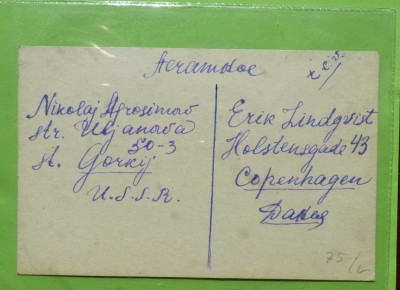 Nikolaj Agrosimov
str. Uljanova
50-3
st. Gorkij
U.S.S.R.
Erik Lindqvist
Holstensgade 43
Copenhagen
75/